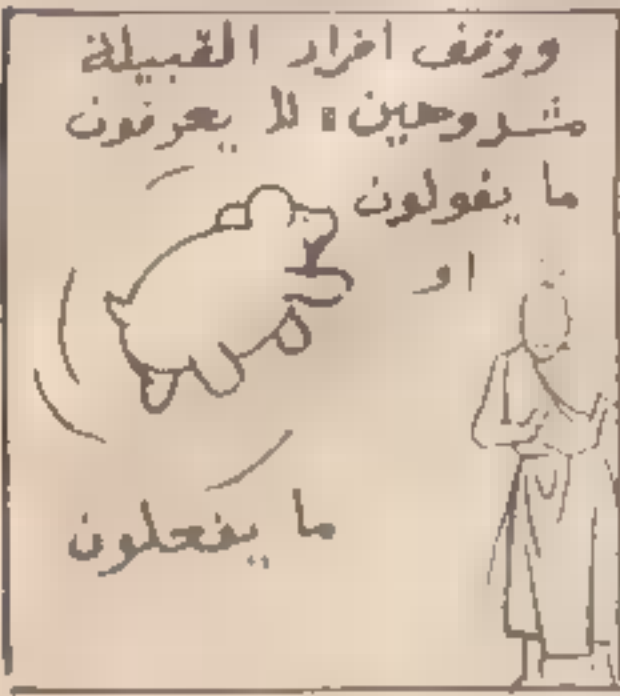 ووقف افراد القبيلة
مشدوهين، لا يعرفون
ما يقولون
او
ما يفعلون